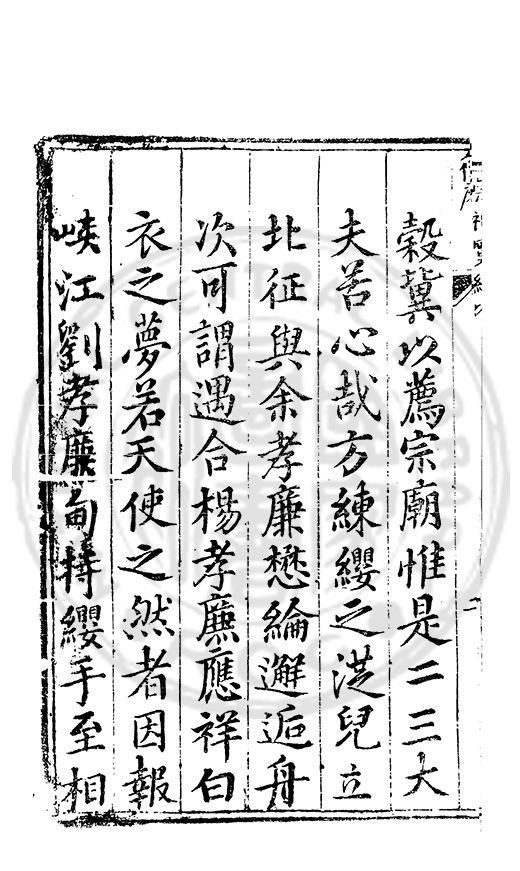 穀冀以薦宗廟惟是二三大
夫苦心哉方練纓之溰兒立
北征與余孝廉懋綸邂逅舟
次可謂遇合楊孝廉應祥白
衣之夢若天使之然者因報
峽江劉孝廉甸摶纓手至相